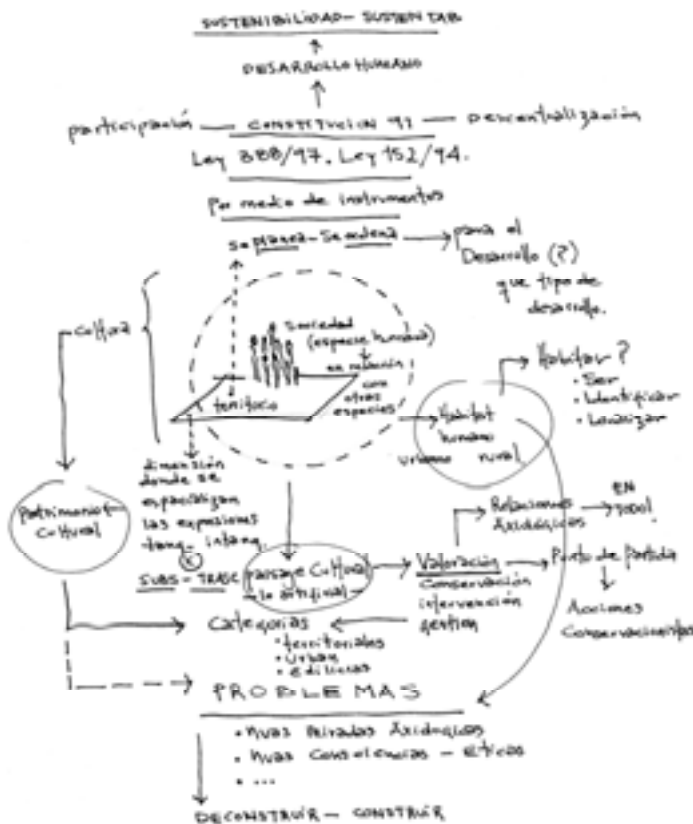 SUSTENIBILIDAD - SUSTENTAB
DESARROLLO HUMANO
participación — CONSTITUCION 91 — Descentralización
Ley 388/97. Ley 152/94.
Por medio de instrumentos
se planea - Se ordena → para el
Desarrollo (?)
que tipo de
desarollo.
Cultura
Sociedad
(especie humana)
en relación
con
otras
especies
territorio
Habitat
humano
urbano rural
Habitar?
• Ser
• Identificar
• Localizar
dimensión
donde se
espacializan
las expresiones
tang- intang.
Patrimonio
Cultural
SUBS - TRASC
paisage Cultural
- lo artificial -
Valoración
Conservación
intervención
gestion
Relaciones
Axiológicos
EN
TODO!
Punto de Partida
Acciones
Conservacionistas
Categorias
• territoriales
• urban
• edilicias
PROBLEMAS
• nuas Miradas Axiológicas
• nuas Consciencias - Eticas
• ...
DECONSTRUIR - CONSTRUIR